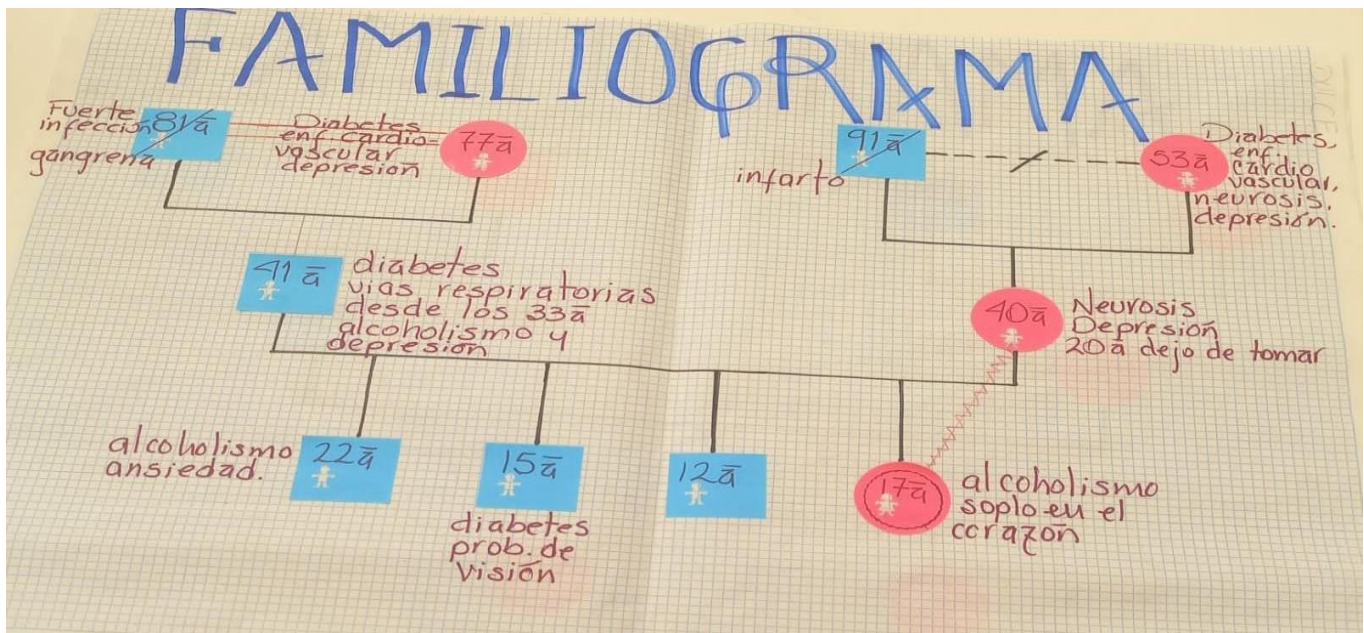 FAMILIOGRAMA
Fuerte
infección
gangrena
81ā
Diabetes
enf. cardio-
vascular
depresión
77ā
91ā
infarto
53ā
Diabetes,
enf.
cardio
vascular,
neurosis.
depresión.
41ā
diabetes
vias respiratorias
desde los 33ā
alcoholismo y
depresión
40ā
Neurosis
Depresión
20ā dejo de tomar
alcoholismo
ansiedad.
22ā
15ā
diabetes
prob. de
visión
12ā
17ā
alcoholismo
soplo en el
corazón